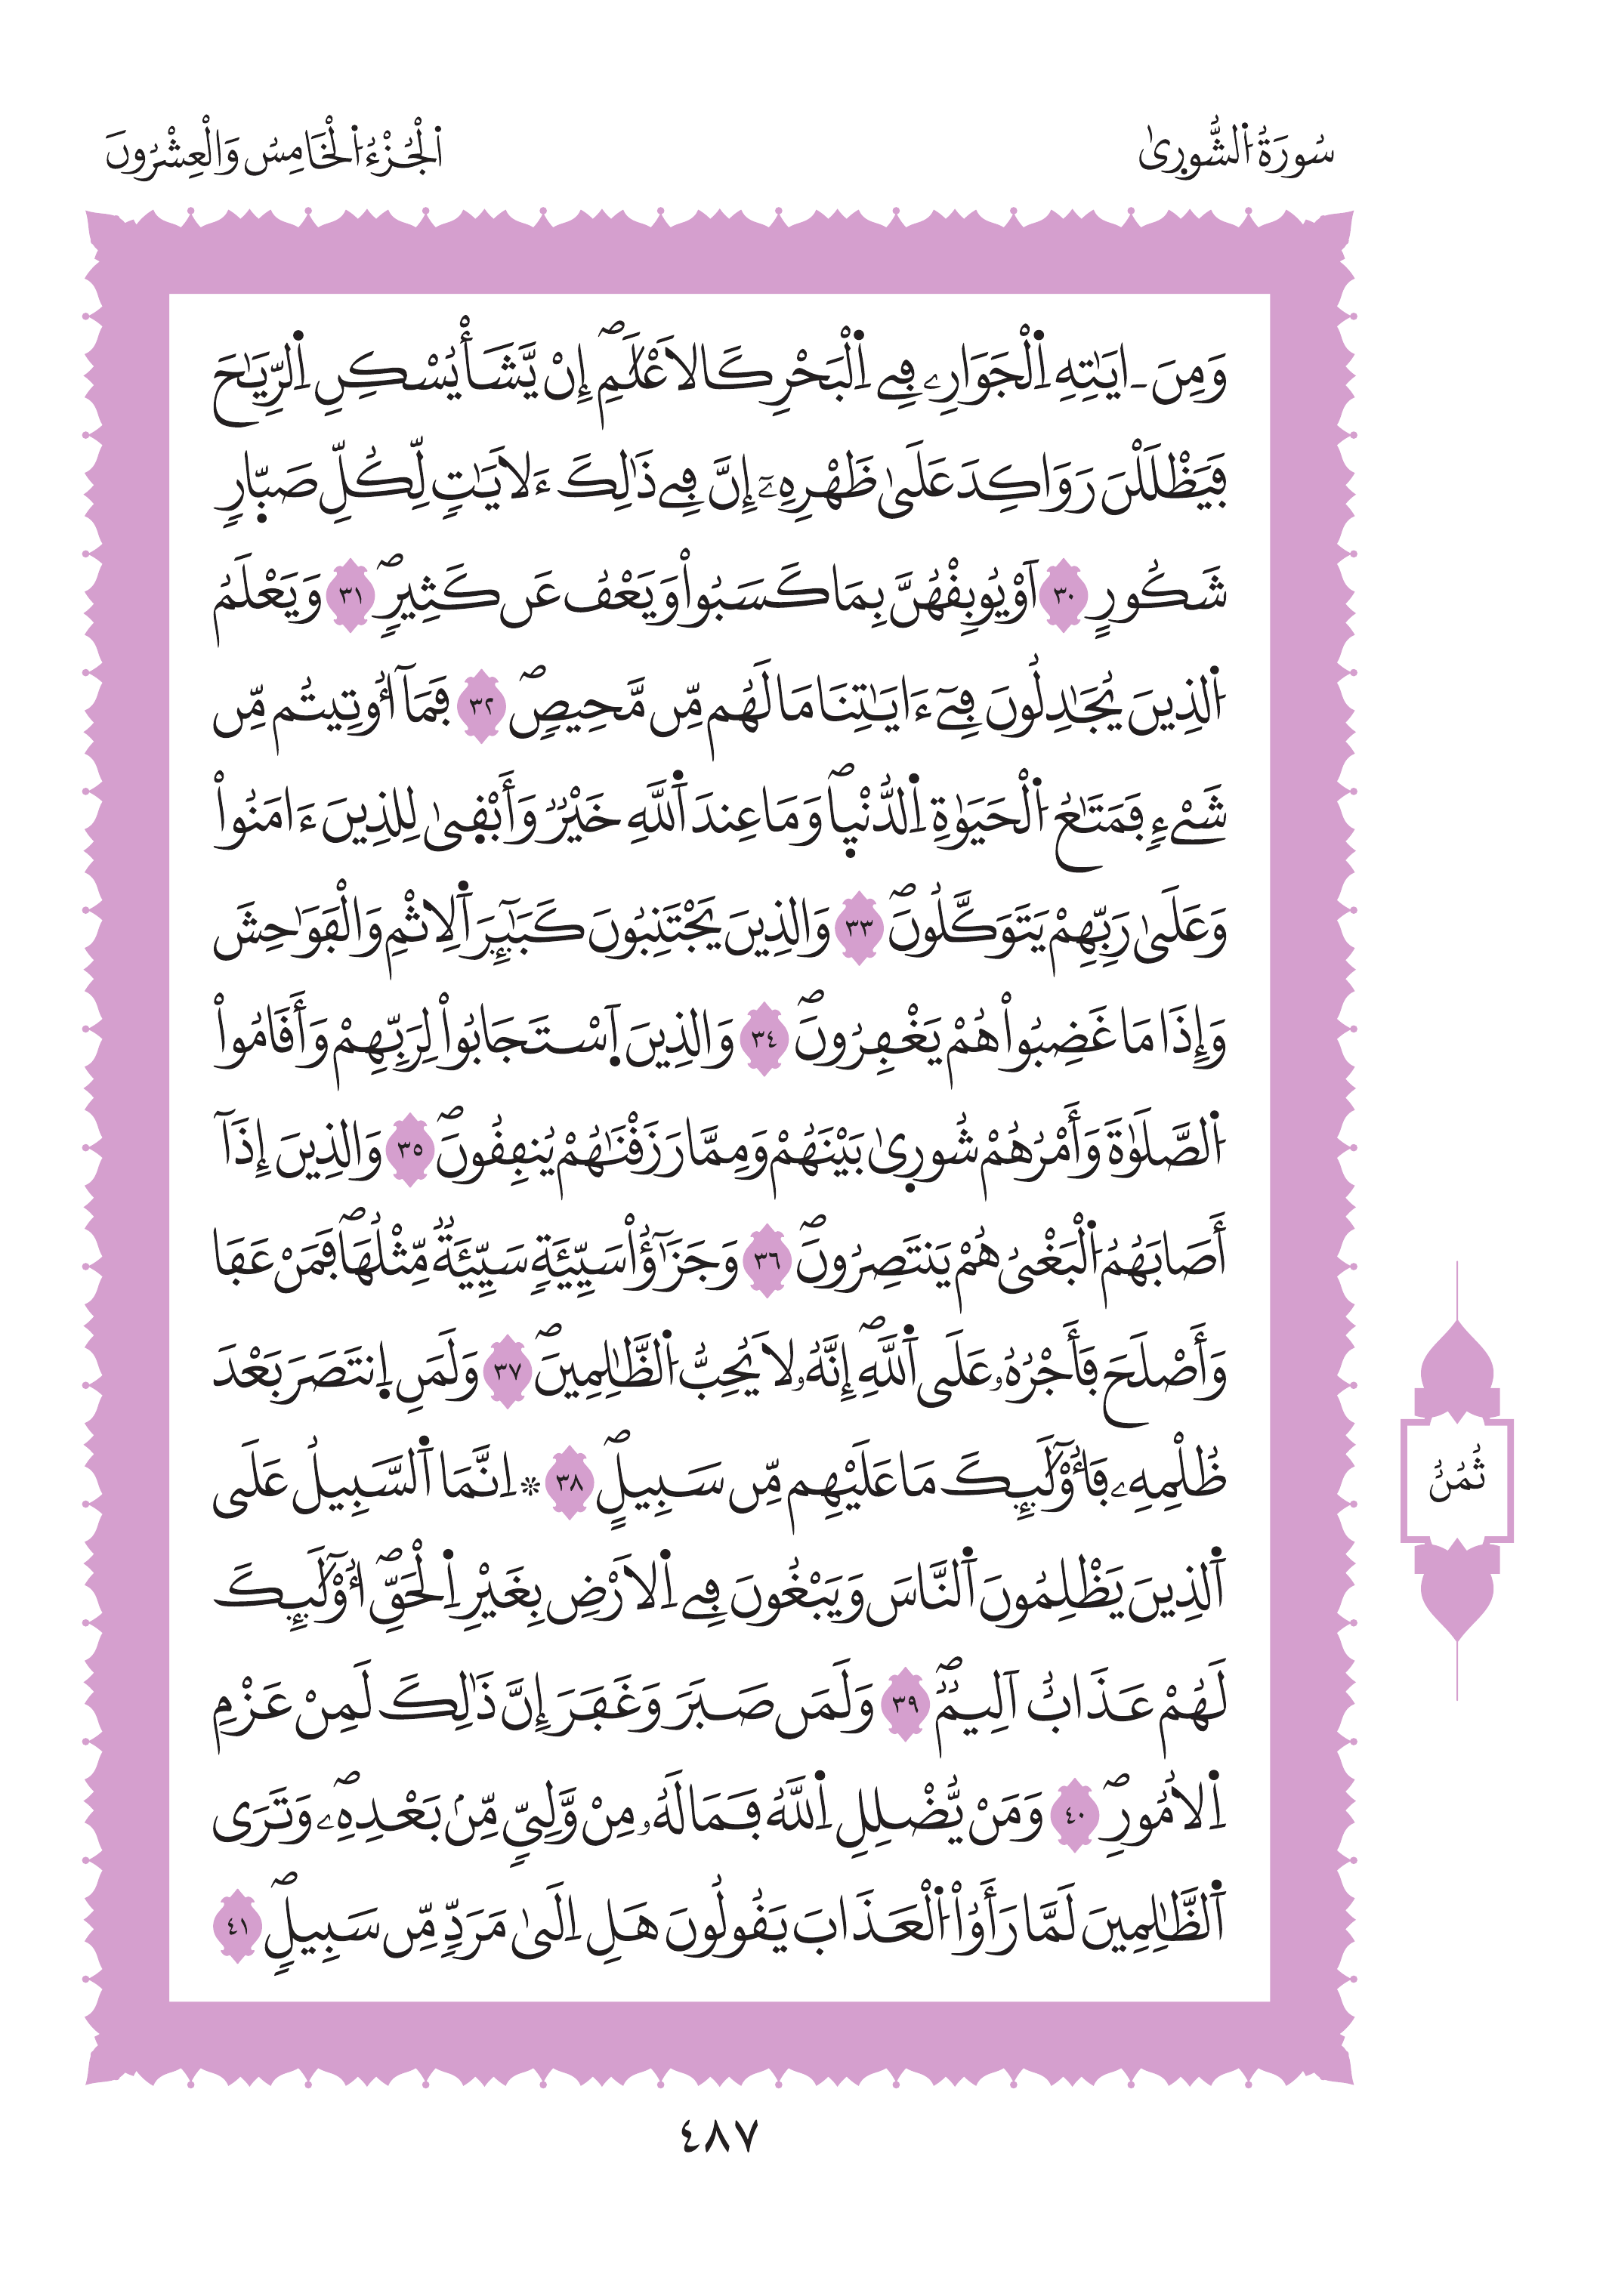 سُورَةُ اُ۬لشُّور۪يٰ
اَ۬لْجُزْءُ اُ۬لْخَامِسُ وَالْعِشْرُونَ
وَمِنَ ـ ايَٰتِهِ اِ۬لْجَوَارِۦ فِے اِ۬لْبَحْرِ كَالَاعْلَٰمِۖ إِنْ يَّشَأْ يُسْكِنِ اِ۬لرِّيَٰحَ
فَيَظْلَلْنَ رَوَاكِدَ عَلَىٰ ظَهْرِهِۦٓ إِنَّ فِے ذَٰلِكَ ءَلَايَٰتٖ لِّكُلِّ صَبّ۪ارٖ
شَكُورٍ ٣٠ اَوْ يُوبِقْهُنَّ بِمَا كَسَبُواْ وَيَعْفُ عَن كَثِيرٖۖ ٣١ وَيَعْلَمُ
اُ۬لذِينَ يُجَٰدِلُونَ فِےٓ ءَايَٰتِنَا مَا لَهُم مِّن مَّحِيصٖۖ ٣٢ فَمَآ أُوتِيتُم مِّن
شَےْءٖ فَمَتَٰعُ اُ۬لْحَيَوٰةِ اِ۬لدُّنْي۪اۖ وَمَا عِندَ اَ۬للَّهِ خَيْرٞ وَأَبْق۪يٰ لِلذِينَ ءَامَنُواْ
وَعَلَىٰ رَبِّهِمْ يَتَوَكَّلُونَۖ ٣٣ وَالذِينَ يَجْتَنِبُونَ كَبَٰٓئِرَ اَ۬لِاثْمِ وَالْفَوَٰحِشَ
وَإِذَا مَا غَضِبُواْ هُمْ يَغْفِرُونَۖ ٣٤ وَالذِينَ اَ۪سْتَجَابُواْ لِرَبِّهِمْ وَأَقَامُواْ
اُ۬لصَّلَوٰةَ وَأَمْرُهُمْ شُور۪يٰ بَيْنَهُمْ وَمِمَّا رَزَقْنَٰهُمْ يُنفِقُونَۖ ٣٥ وَالذِينَ إِذَآ
أَصَابَهُمُ اُ۬لْبَغْيُ هُمْ يَنتَصِرُونَۖ ٣٦ وَجَزَٰٓؤُاْ سَيِّئَةٖ سَيِّئَةٞ مِّثْلُهَاۖ فَمَنْ عَفَا
وَأَصْلَحَ فَأَجْرُهُۥ عَلَى اَ۬للَّهِۖ إِنَّهُۥ لَا يُحِبُّ اُ۬لظَّٰلِمِينَۖ ٣٧ وَلَمَنِ اِ۪نتَصَرَ بَعْدَ
ظُلْمِهِۦ فَأُوْلَٰٓئِكَ مَا عَلَيْهِم مِّن سَبِيلٍۖ ٣٨ ۞ اِنَّمَا اَ۬لسَّبِيلُ عَلَى
اَ۬لذِينَ يَظْلِمُونَ اَ۬لنَّاسَ وَيَبْغُونَ فِے اِ۬لَارْضِ بِغَيْرِ اِ۬لْحَقِّۖ أُوْلَٰٓئِكَ
لَهُمْ عَذَابٌ اَلِيمٞۖ ٣٩ وَلَمَن صَبَرَ وَغَفَرَ إِنَّ ذَٰلِكَ لَمِنْ عَزْمِ
اِ۬لُامُورِۖ ٤٠ وَمَنْ يُّضْلِلِ اِ۬للَّهُ فَمَا لَهُۥ مِنْ وَّلِيّٖ مِّنۢ بَعْدِهِۦۖ وَتَرَى
اَ۬لظَّٰلِمِينَ لَمَّا رَأَوُاْ اُ۬لْعَذَابَ يَقُولُونَ هَلِ اِلَىٰ مَرَدّٖ مِّن سَبِيلٖۖ ٤١
ثُمُنٌ
٤٨٧